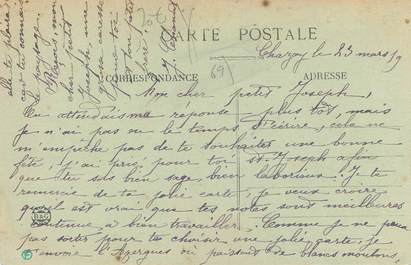 CARTE POSTALE
Chazay le 23 mars 19
CORRESPONDANCE
69
ADRESSE
Mon cher petit Joseph,
Tu attendais ma réponse plus tôt, mais
je n'ai pas eu le temps d'écrire, cela ne
m'empêche pas de te souhaiter une bonne
fête, j'ai prié pour toi St Joseph afin
que tu sois bien sage bien laborieux. Je te
remercie de ta jolie carte, je veux croire
qu'il est vrai que tes notes sont meilleures
continue à bien travailler. Comme je ne peux
pas sortir pour te choisir une jolie carte, je
l'Azergues où paissent de blancs moutons,
elle te plaira
car tu connais
le paysage.
mon
cher petit
Joseph, une
caresse
de ton